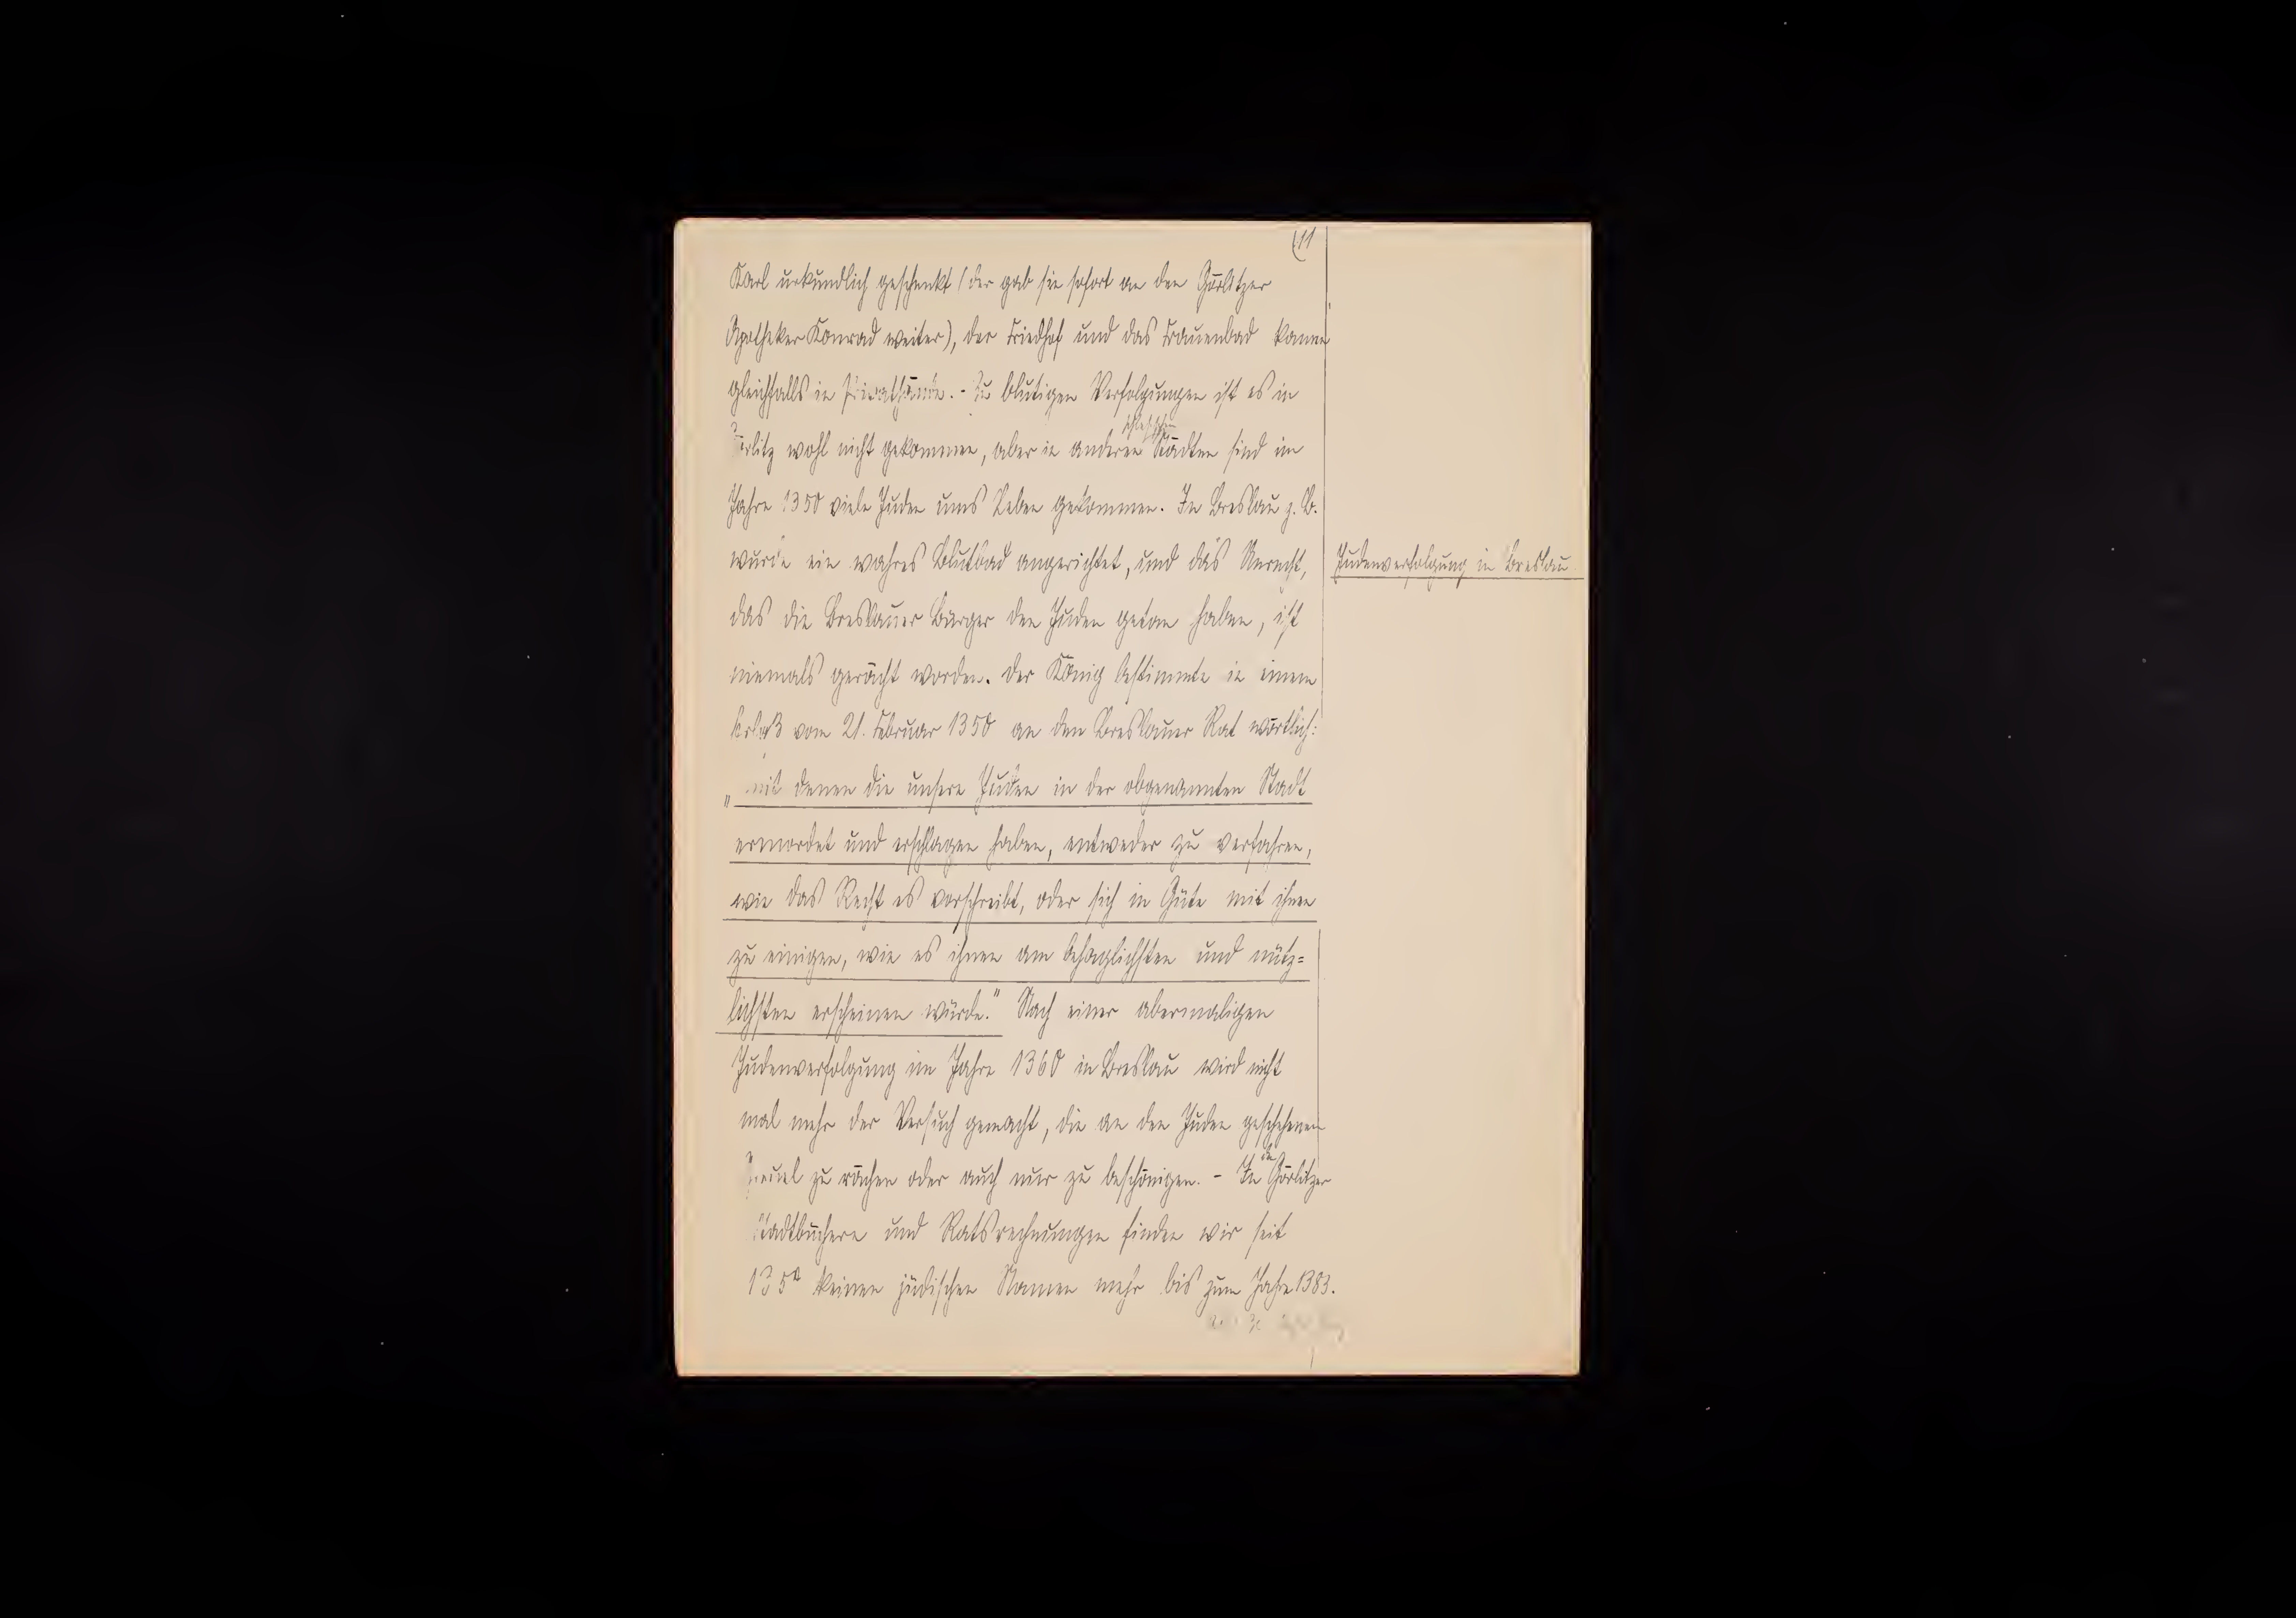 (11
Karl urkundlich geschenkt (der gab sie sofort an den Görlitzer
Apotheker Konrad weiter), der Friedhof und das Frauenbad kamen
gleichfalls in Privathände. - Zu blutigen Verfolgungen ist es in
Görlitz wohl nicht gekommen, aber in anderen schlesischen Städten sind im
Jahre 1350 viele Juden ums Leben gekommen. In Breslau z. B.
wurde ein wahres Blutbad angerichtet, und das Unrecht,
Judenverfolgung in Breslau
das die Breslauer Bürger den Juden getan haben, ist
niemals gerächt worden. Der König bestimmte in einem
Erlaß vom 21. Februar 1350 an den Breslauer Rat wörtlich:
„mit denen die unsere Juden in der obgenannten Stadt
ermordet und erschlagen haben, entweder zu verfahren,
wie das Recht es vorschreibt, oder sich in Güte mit ihnen
zu einigen, wie es ihnen am behaglichsten und nütz=
lichsten erscheinen würde." Nach einer abermaligen
Judenverfolgung im Jahre 1360 in Breslau wird nicht
mal mehr der Versuch gemacht, die an den Juden geschehenen
Greuel zu rächen oder auch nur zu beschönigen. - In den Görlitzer
Stadtbüchern und Ratsrechnungen finden wir seit
1350 keinen jüdischen Namen mehr bis zum Jahre 1383.